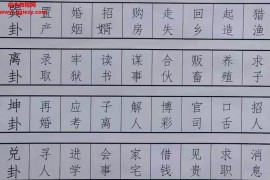 置 婚 招 购 走 回 起 猎
卦 产 姻 婿 房 失 乡 造 渔
离 录 牢 读 谋 合 贩 养 求
卦 取 狱 书 事 伙 畜 殖 子
坤 再 应 子 解 博 官 口 招
卦 婚 考 离 人 彩 司 舌 人
兑 寻 进 会 家 借 见 求 消
卦 人 学 事 宅 钱 贵 职 息